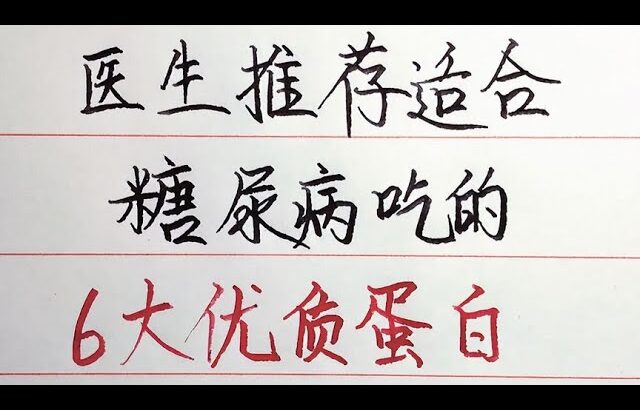 医生推荐适合
糖尿病吃的
6大优质蛋白